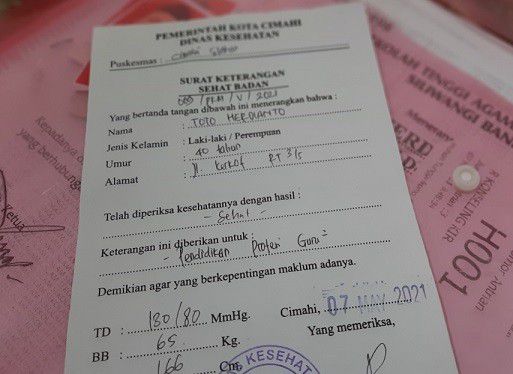 PEMERINTAH KOTA CIMAHI
DINAS KESEHATAN
Puskesmas :
SURAT KETERANGAN
SEHAT BADAN
/ V / 2021
Yang bertanda tangan dibawah ini menerangkan bahwa :
Nama : TOTO HERDIANTO
Jenis Kelamin : Laki-laki / Perempuan
Umur : 40 tahun
Alamat : Jl. RT 3/5
Telah diperiksa kesehatannya dengan hasil :
- Sehat -
Keterangan ini diberikan untuk :
- Pendidikan Profesi Guru 2
Demikian agar yang berkepentingan maklum adanya.
Cimahi, 07 MAY 2021
TD : 130/80 MmHg.
Yang memeriksa,
BB : 65 Kg.
166 Cm
KESEHAT
Kepadanya d
yang berhubung
Ketua
SEKOLAH TINGGI AGAM
SILIWANGI BAN
Menerang
R KONSELING (IR
H001
Antrian